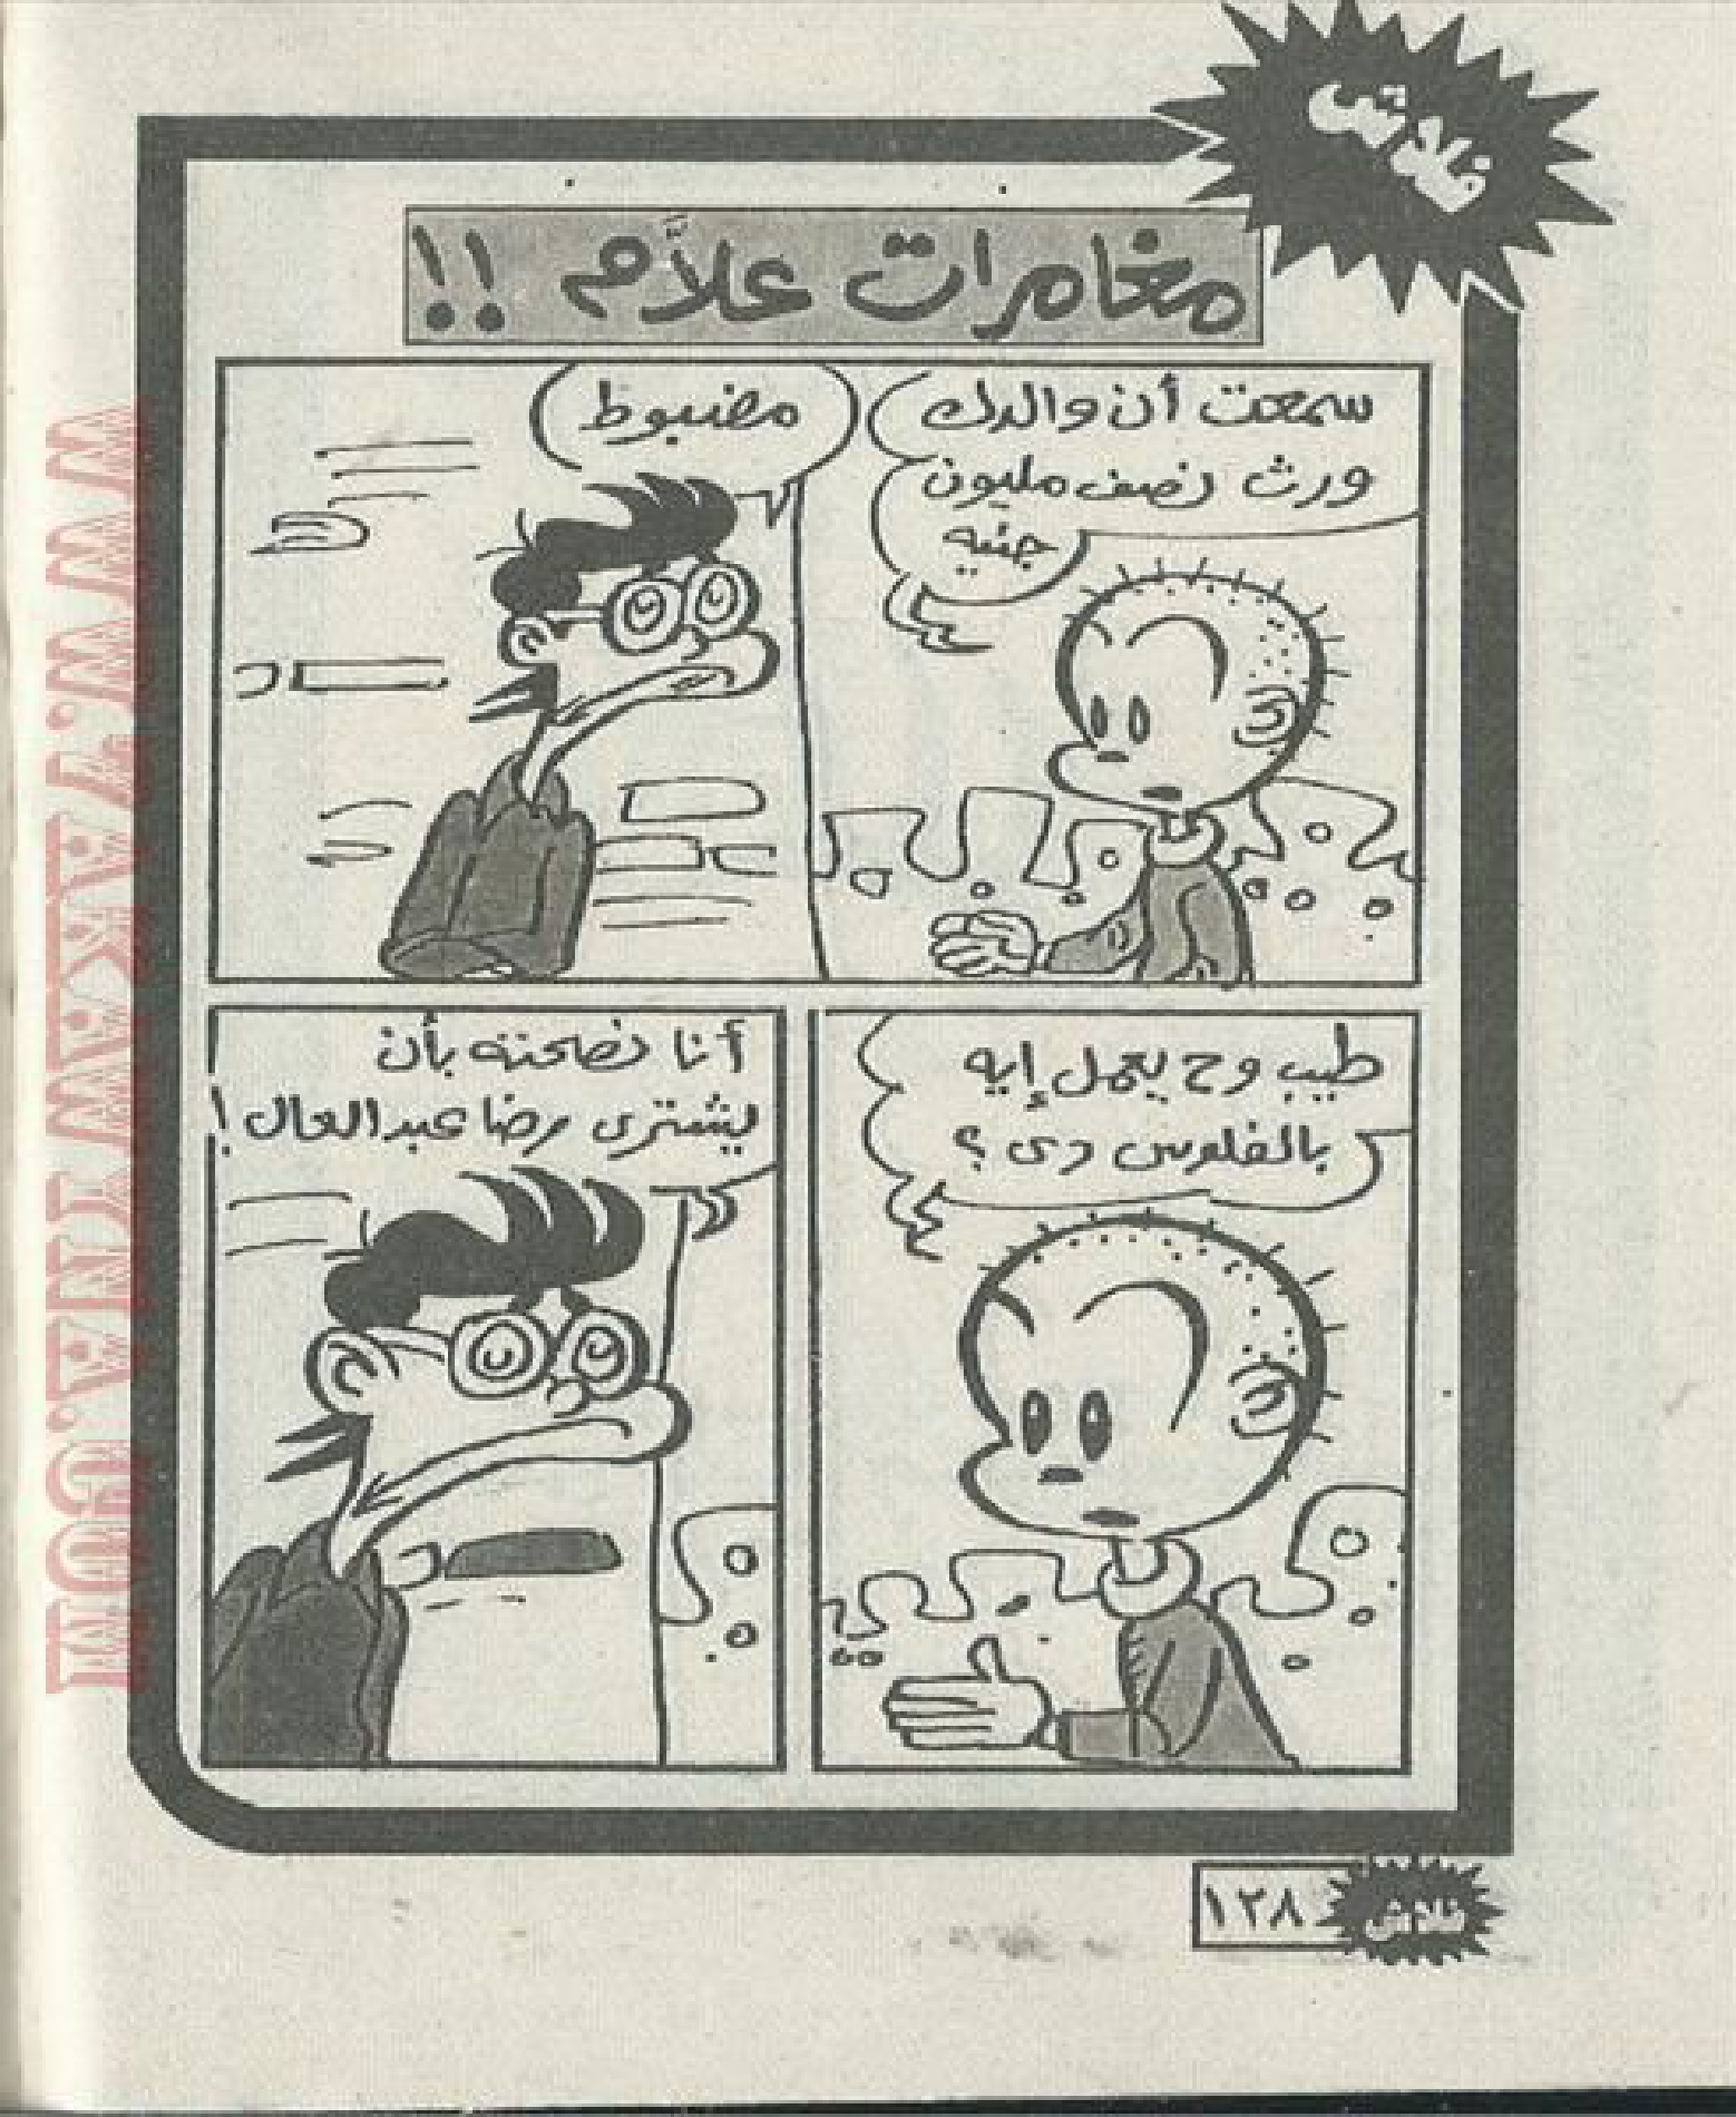 فلاش
مغامرات علاَّم !!
سمعت أن والدك
ورث نصف مليون
جنيه
مضبوط
طيب وح يعمل إيه
بالفلوس دى ؟
أنا نصحته بأن
يشترى رضا عبد العال !
فلاش
١٢٨